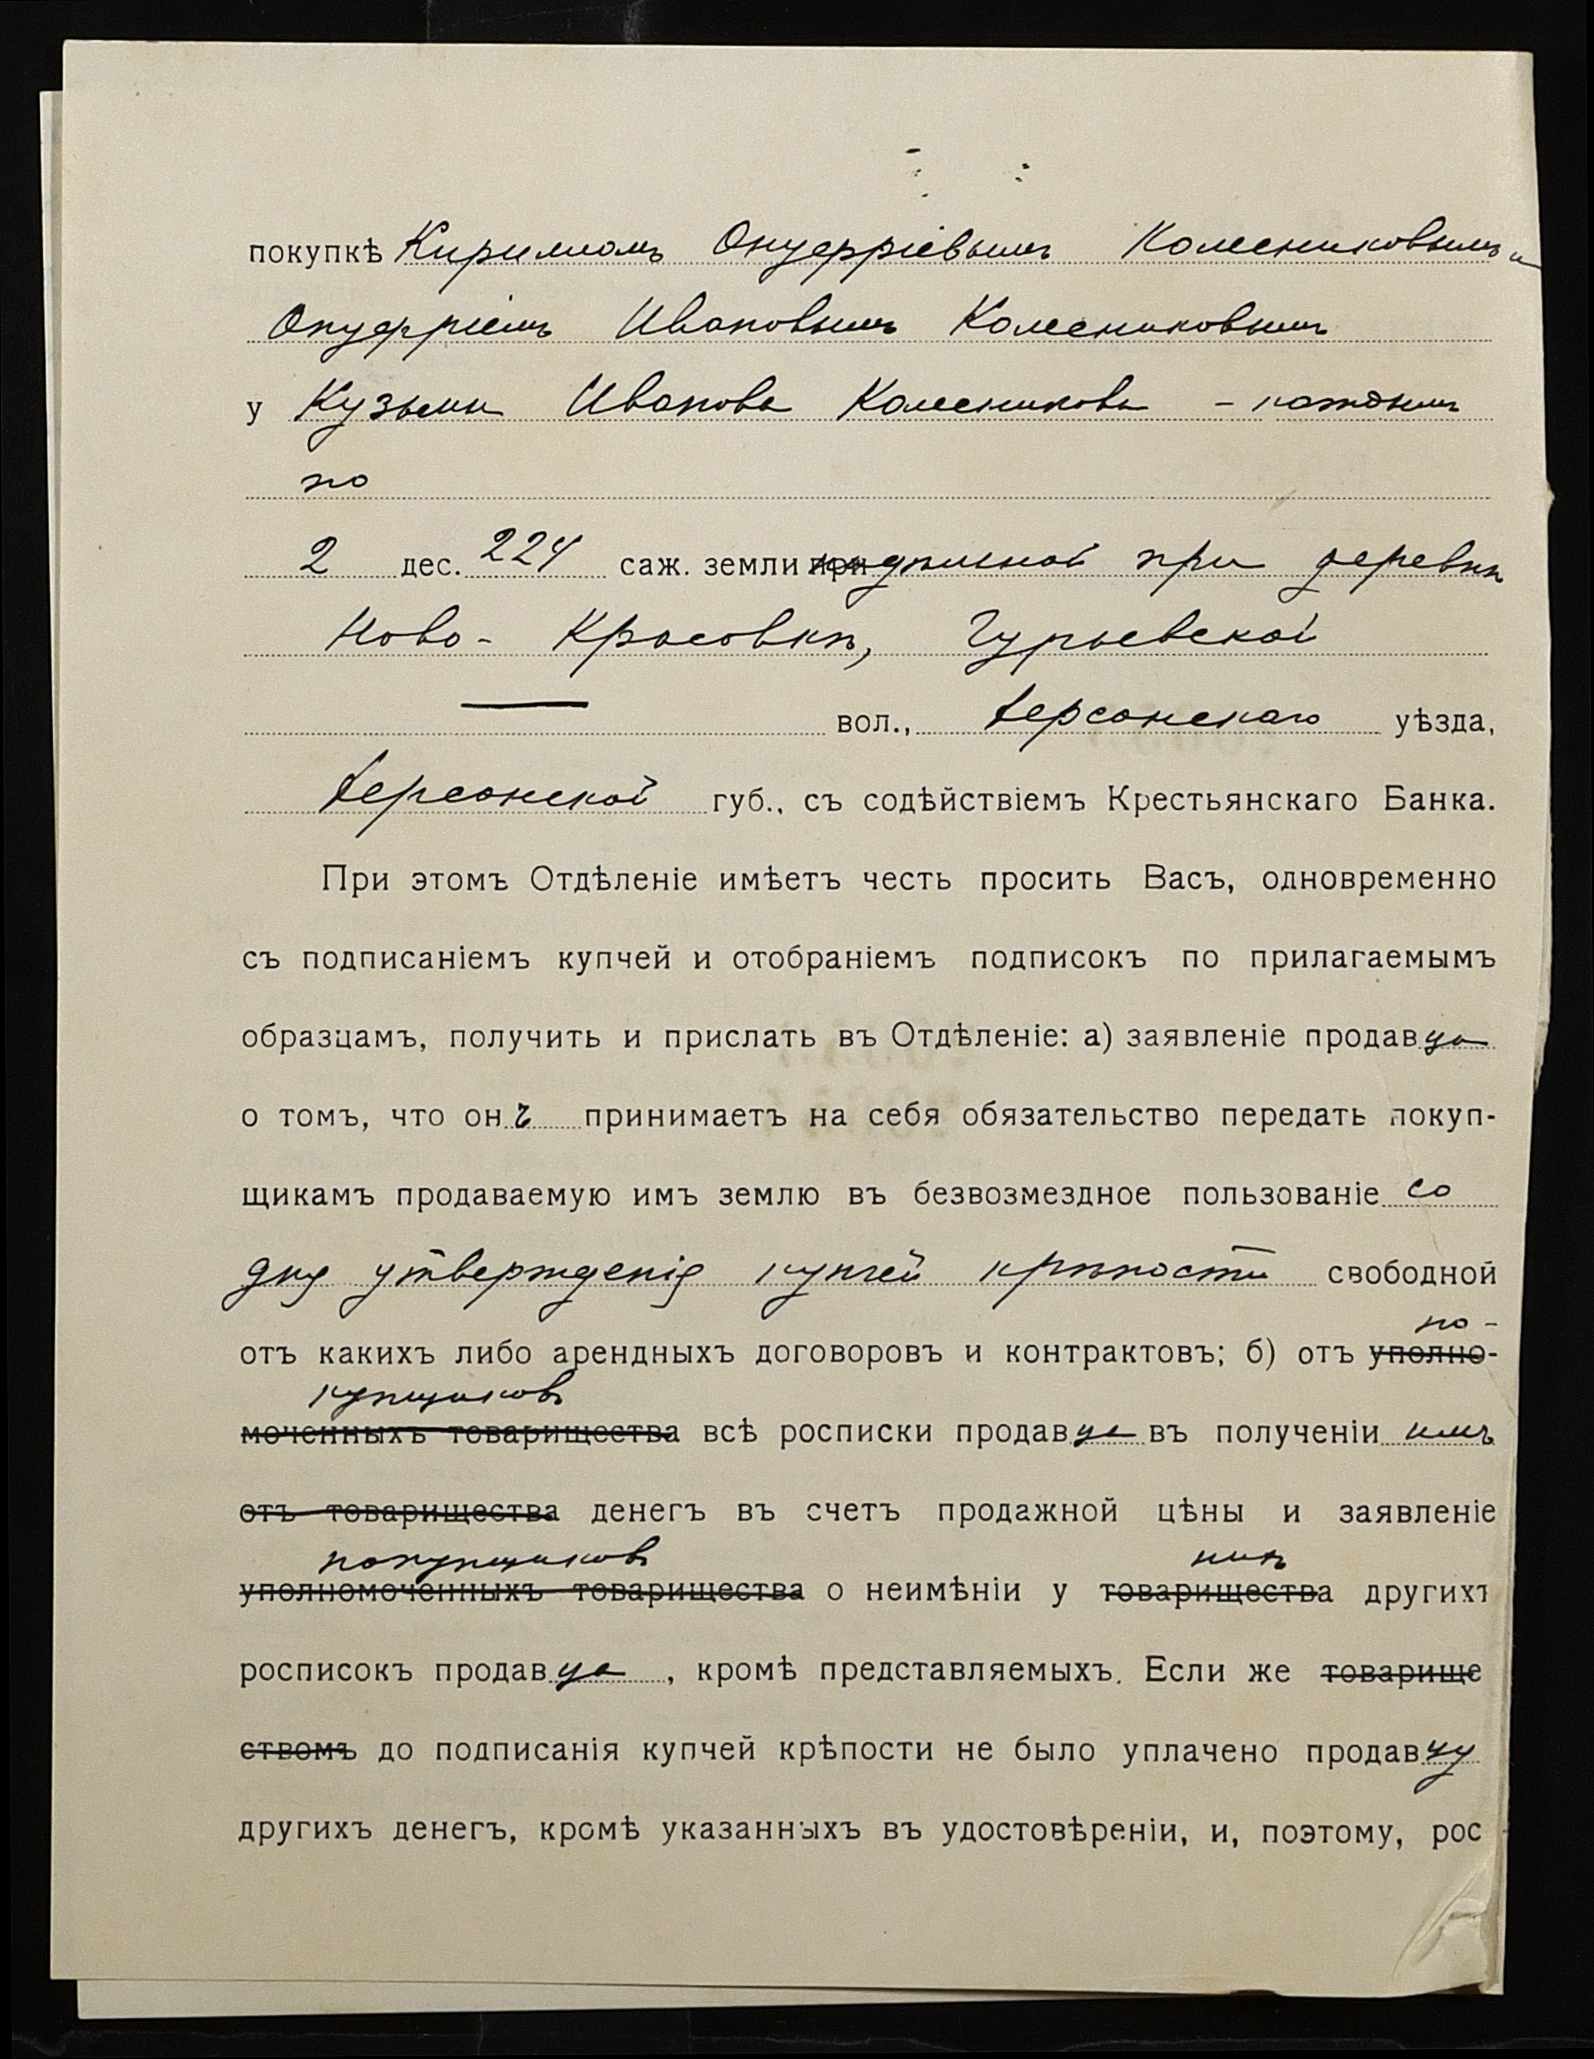 покупкѣ Кирилломъ Онуфріевымъ Колесниковымъ и
Онуфріемъ Ивановымъ Колесниковымъ
у Кузьмы Иванова Колесникова - каждымъ
по
2 дес. 224 саж. земли при надѣльной при деревнѣ
Ново-Красовкѣ, Гурьевской
вол., Херсонскаго уѣзда,
Херсонской губ., съ содѣйствіемъ Крестьянскаго Банка.
При этомъ Отдѣленіе имѣетъ честь просить Васъ, одновременно
съ подписаніемъ купчей и отобраніемъ подписокъ по прилагаемымъ
образцамъ, получить и прислать въ Отдѣленіе: а) заявленіе продавца
о томъ, что онъ принимаетъ на себя обязательство передать покуп-
щикамъ продаваемую имъ землю въ безвозмездное пользованіе со
дня утвержденія купчей крѣпости свободной
по-
отъ какихъ либо арендныхъ договоровъ и контрактовъ; б) отъ уполно-
купщиковъ
моченныхъ товарищества всѣ росписки продавца въ полученіи имъ
отъ товарищества денегъ въ счетъ продажной цѣны и заявленіе
покупщиковъ нихъ
уполномоченныхъ товарищества о неимѣніи у товарищества другихъ
росписокъ продавца, кромѣ представляемыхъ. Если же товарище
ствомъ до подписанія купчей крѣпости не было уплачено продавцу
другихъ денегъ, кромѣ указанныхъ въ удостовѣреніи, и, поэтому, рос